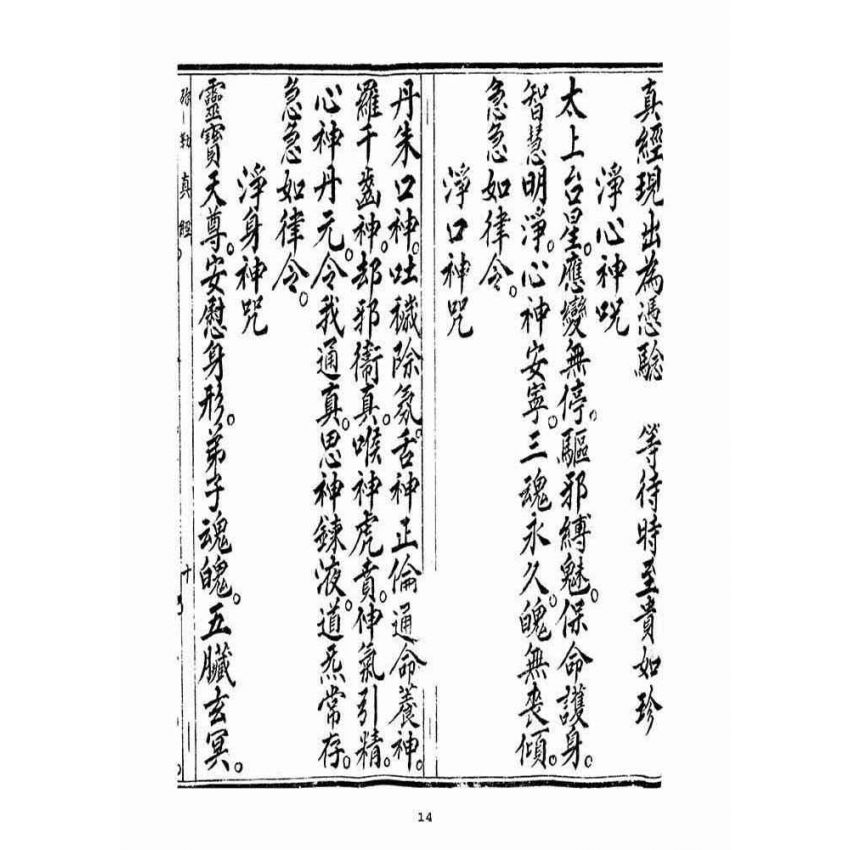 真經現出為憑驗　等待時至貴如珍
淨心神咒
太上台星。應變無停。驅邪縛魅。保命護身。
智慧明淨。心神安寧。三魂永久。魄無喪傾。
急急如律令。
淨口神咒
丹朱口神。吐穢除氛。舌神正倫通命養神。
羅千齒神。却邪衛真。喉神虎賁。神氣引精。
心神丹元。令我通真。思神鍊液。道炁常存。
急急如律令。
淨身神咒
靈寶天尊。安慰身形。弟子魂魄。五臟玄冥。
弥勒真經
十
14